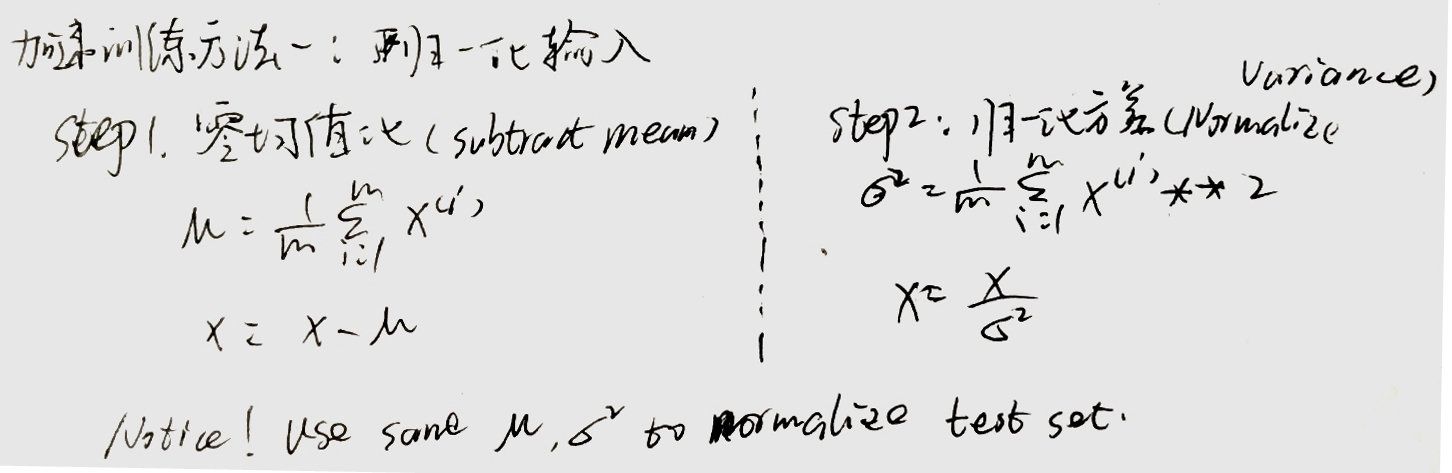 加速训练方法一：归一化输入
Step1. 零均值化 (subtract mean)
μ = \frac{1}{m} \sum_{i=1}^{m} x^{(i)}
x = x - μ
Step2: 归一化方差 (Normalize Variance)
σ² = \frac{1}{m} \sum_{i=1}^{m} x^{(i)} ** 2
x = \frac{x}{σ²}
Notice! Use same μ, σ² to normalize test set.